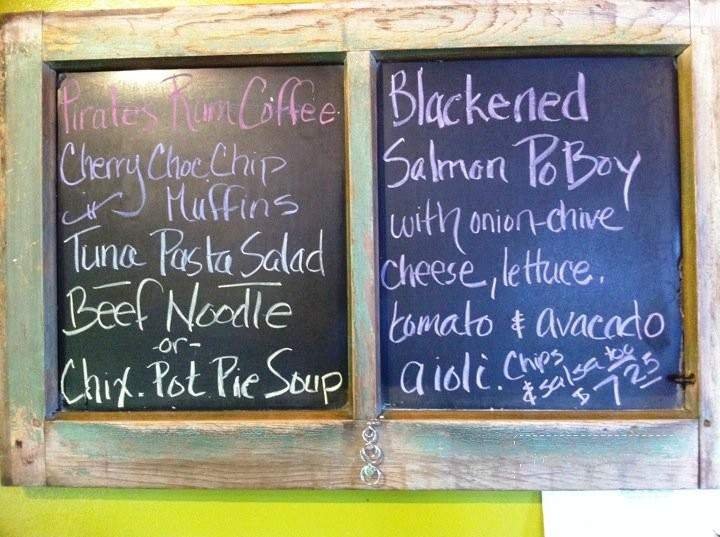 Pirates Rum Coffee
Cherry Choc. Chip
Muffins
Tuna Pasta Salad
Beef Noodle
-or-
Chix. Pot Pie Soup
Blackened
Salmon Po Boy
with onion-chive
cheese, lettuce,
tomato & avacado
aioli. Chips
& salsa too
$7.25